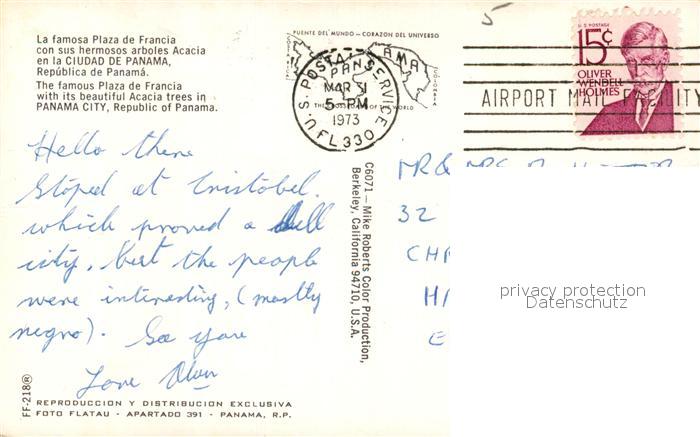 La famosa Plaza de Francia
con sus hermosos arboles Acacia
en la CIUDAD de PANAMA,
República de Panamá.
The famous Plaza de Francia
with its beautiful Acacia trees in
PANAMA CITY, Republic of Panama.
PUENTE DEL MUNDO - CORAZON DEL UNIVERSO
PANAMA
U.S. POSTAL SERVICE
MAR 31
5 PM
1973
FL 330
5
U.S. POSTAGE
15¢
OLIVER
WENDELL
HOLMES
AIRPORT MAIL FACILITY
Hello there
Stoped at Cristobel.
which proved a dull
city, but the people
were interesting, (mostly
negro). See you
Love
C6071—Mike Roberts Color Production,
Berkeley, California 94710, U.S.A.
MR &
32
CH
H
E
privacy protection
Datenschutz
FF-218®
REPRODUCCION Y DISTRIBUCION EXCLUSIVA
FOTO FLATAU - APARTADO 391 - PANAMA, R.P.